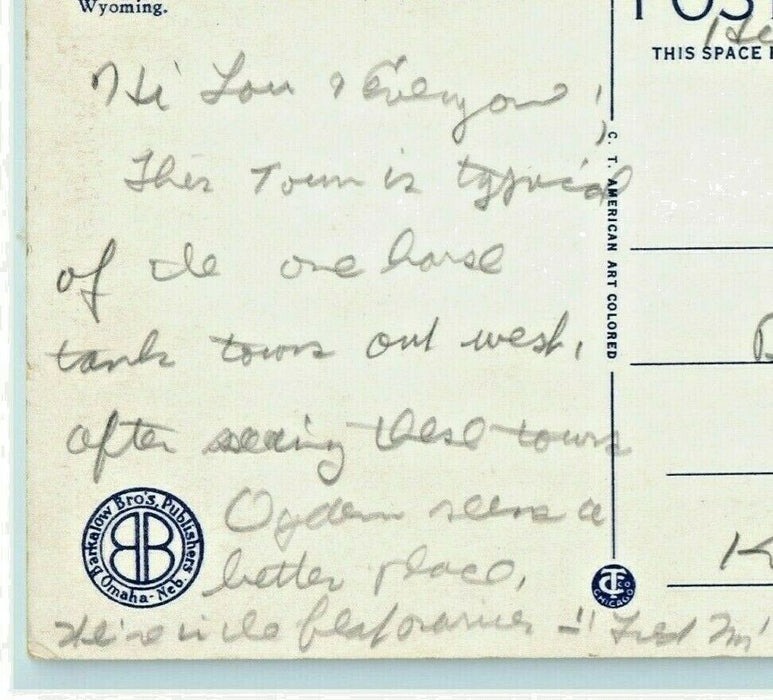 Wyoming.
POST
THIS SPACE
Hi Lou & Everyone!
This Town is typical
of de one horse
tank towns out west,
after seeing these towns
Ogden seems a
better place,
We're in de
Fred
C. T. AMERICAN ART COLORED
Barkalow Bro's, Publishers
Omaha-Neb.
BB
CT CO
CHICAGO